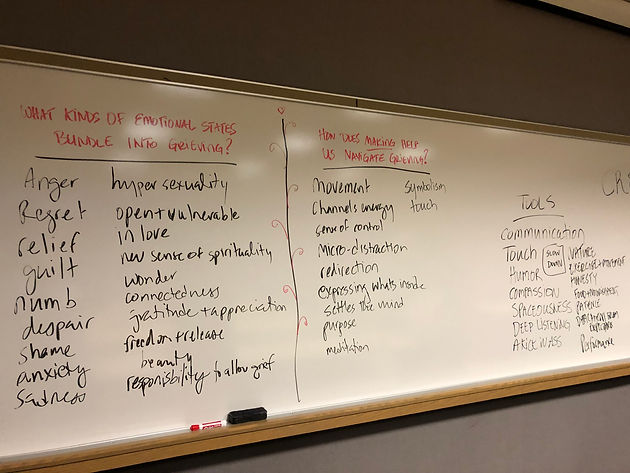 WHAT KINDS OF EMOTIONAL STATES
BUNDLE INTO GRIEVING?
Anger
Regret
relief
guilt
numb
despair
shame
anxiety
Sadness
hyper sexuality
open + vulnerable
in love
new sense of spirituality
wonder
connectedness
gratitude + appreciation
freedom + release
beauty
responsibility to allow grief
HOW DOES MAKING HELP
US NAVIGATE GRIEVING?
movement
Channels energy
sense of control
micro-distraction
redirection
expressing whats inside
settles the mind
purpose
meditation
symbolism
touch
CR
TOOLS
Communication
TOUCH
HUMOR
COMPASSION
SPACEOUSNESS
DEEP LISTENING
A KICK IN ASS
SLOW
DOWN
NATURE
EXERCISE + MOVEMENT
HONESTY
FOOD +
PATIENCE
FROM
Performance